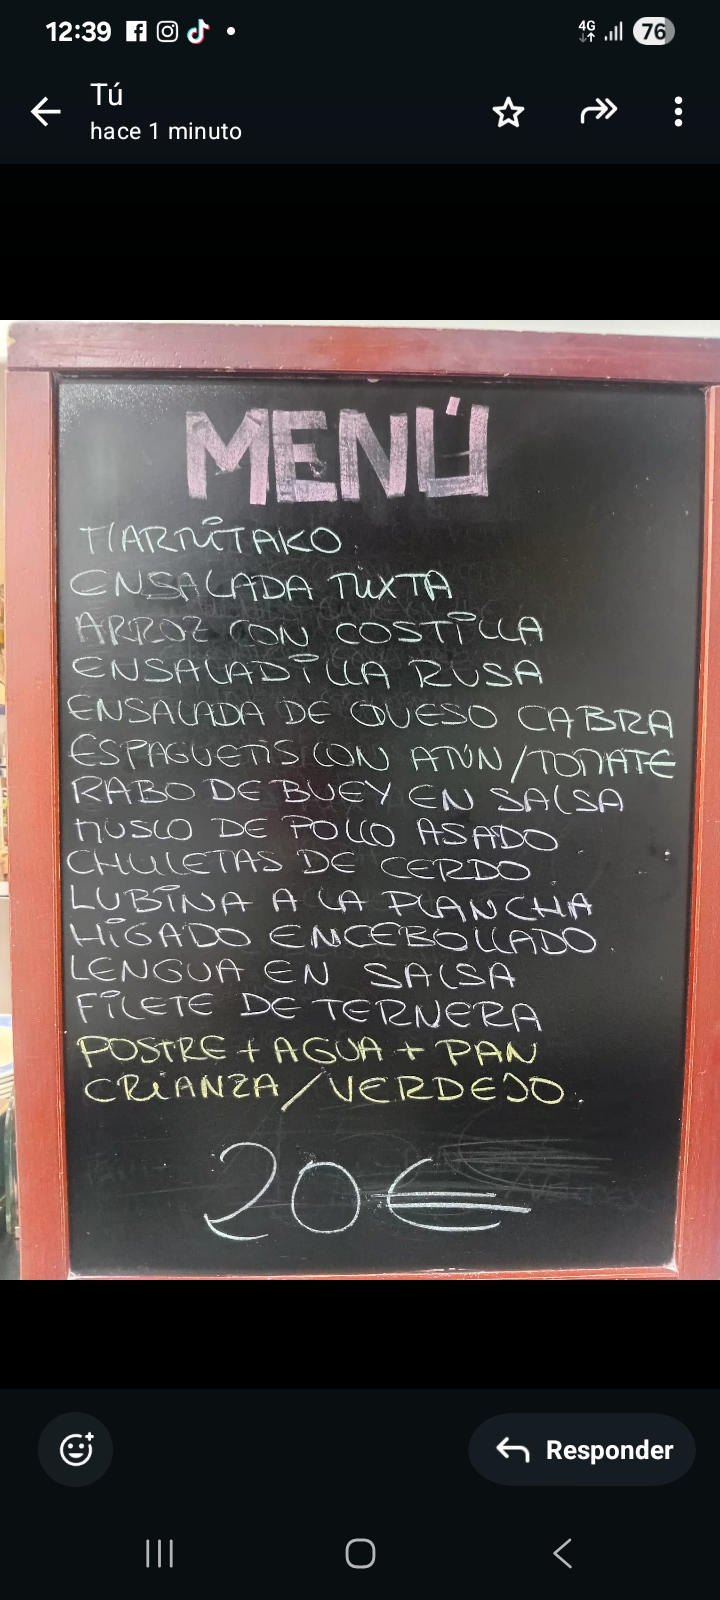 12:39
4G
76
Tú
hace 1 minuto
MENÚ
MARMITAKO
ENSALADA MIXTA
ARROZ CON COSTILLA
ENSALADILLA RUSA
ENSALADA DE QUESO CABRA
ESPAGUETIS CON ATÚN/TOMATE
RABO DE BUEY EN SALSA
MUSLO DE POLLO ASADO
CHULETAS DE CERDO
LUBINA A LA PLANCHA
HIGADO ENCEBOLLADO
LENGUA EN SALSA
FILETE DE TERNERA
POSTRE + AGUA + PAN
CRIANZA/VERDEJO.
20€
Responder